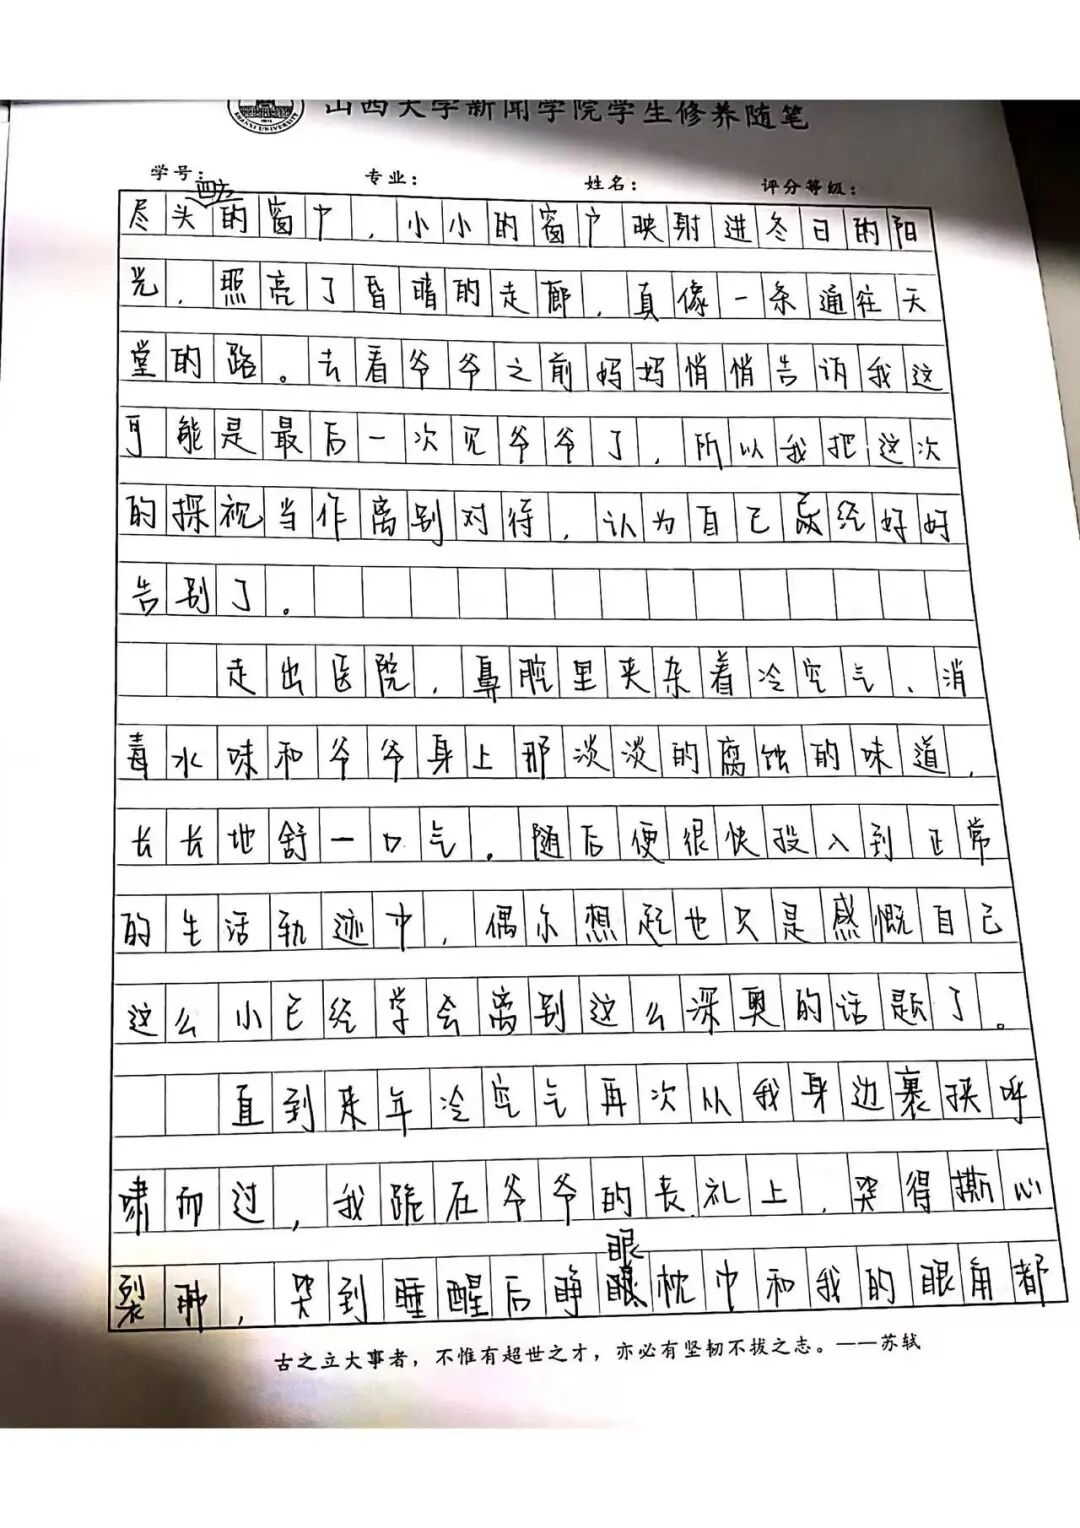 山西大学新闻学院学生修养随笔
学号： 专业： 姓名： 评分等级：
四方
尽头的窗户，小小的窗户映射进冬日的阳
光，照亮了昏暗的走廊，真像一条通往天
堂的路。去看爷爷之前妈妈悄悄告诉我这
可能是最后一次见爷爷了，所以我把这次
的探视当作离别对待，认为自己已经好好
告别了。
走出医院，鼻腔里夹杂着冷空气、消
毒水味和爷爷身上那淡淡的腐蚀的味道，
长长地舒一口气。随后便很快投入到正常
的生活轨迹中，偶尔想起也只是感慨自己
这么小已经学会离别这么深奥的话题了。
直到来年冷空气再次从我身边裹挟呼
啸而过，我跪在爷爷的丧礼上，哭得撕心
眼
裂肺，哭到睡醒后睁眼枕巾和我的眼角都
古之立大事者，不惟有超世之才，亦必有坚韧不拔之志。——苏轼